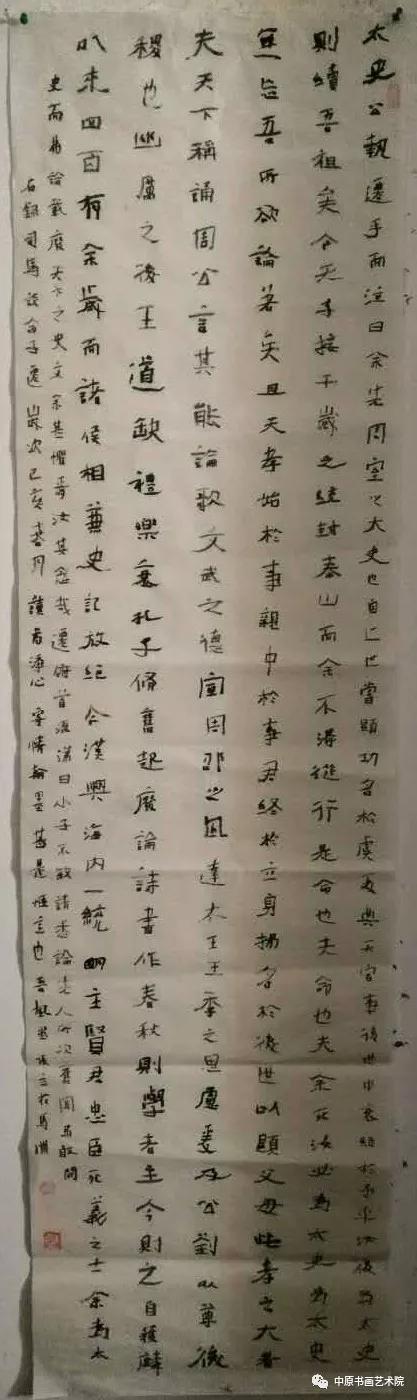 太史公執遷手而泣曰余先周室之太史也自上世嘗顯功名於虞夏典天官事後世中衰絕於予乎汝復為太史
則續吾祖矣今天子接千歲之統封泰山而余不得從行是命也夫命也夫余死汝必為太史為太史
無忘吾所欲論著矣且夫孝始於事親中於事君終於立身揚名於後世以顯父母此孝之大者
夫天下稱誦周公言其能論歌文武之德宣周邵之風達太王王季之思慮爰及公劉以尊后
稷也幽厲之後王道缺禮樂衰孔子修舊起廢論詩書作春秋則學者至今則之自獲麟
以來四百有余歲而諸侯相兼史記放絕今漢興海內一統明主賢君忠臣死義之士余為太
史而弗論載廢天下之史文余甚懼焉汝其念哉遷俯首流涕曰小子不敏請悉論先人所次舊聞弗敢闕
右錄司馬談命子遷 歲次己亥 月讀書 心寄情翰墨 是 言也
中原书画艺术院